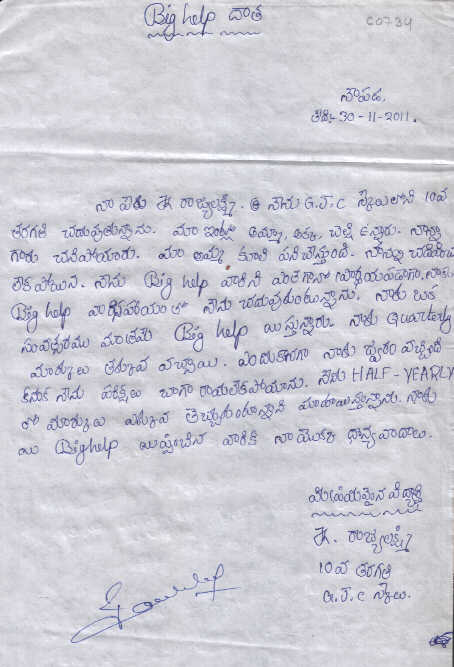 Big help దాత
C0734
సాపడ,
తేది:- 30-11-2011.
నా పేరు K. రాజ్యలక్ష్మి. నేను G.J.C స్కూలులో 10వ
తరగతి చదువుతున్నాను. మా ఇంట్లో అమ్మా, అక్క, చెల్లి ఉన్నారు. నాన్న
గారు చనిపోయారు. మా అమ్మ కూలి పని చేస్తుంది. నన్ను చదివించ
లేక పోయిన. నేను Big help వారిని ఎంతగానో నాకు
Big help వారి సహాయం తో నేను చదువుకుంటున్నాను. నాకు ఒక
సంవత్సరము మాత్రమే Big help ఇస్తున్నారు. నాకు Quarterly
మార్కులు తక్కువ వచ్చాయి. ఎందుకనగా నాకు జ్వరం వచ్చింది
కనుక నేను పరీక్షలు బాగా రాయలేకపోయాను. నేను HALF-YEARLY
లో మార్కులు ఎక్కువ తెచ్చుకుంటానని నాకు
ఈ Big help ఇప్పించిన వారికి నా యొక్క ధన్యవాదాలు.
ఇట్లు విద్యార్థి
K. రాజ్యలక్ష్మి
10వ తరగతి
G.J.C స్కూలు.